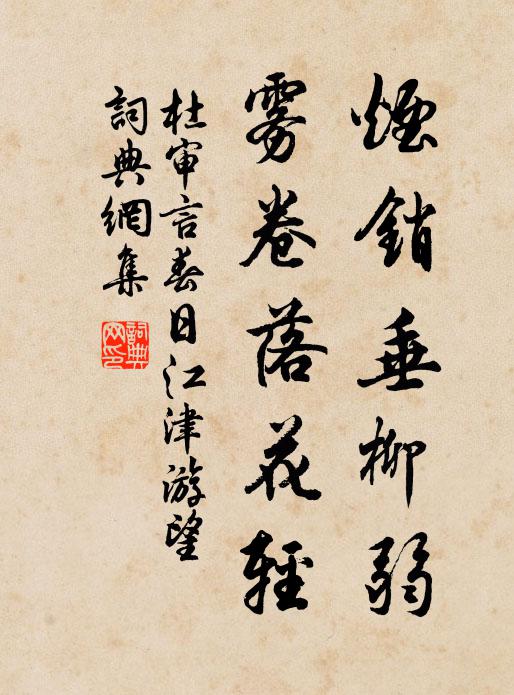 煙銷垂柳弱
雾卷落花輕
杜审言春日江津游望
詞典網集
詞典網印